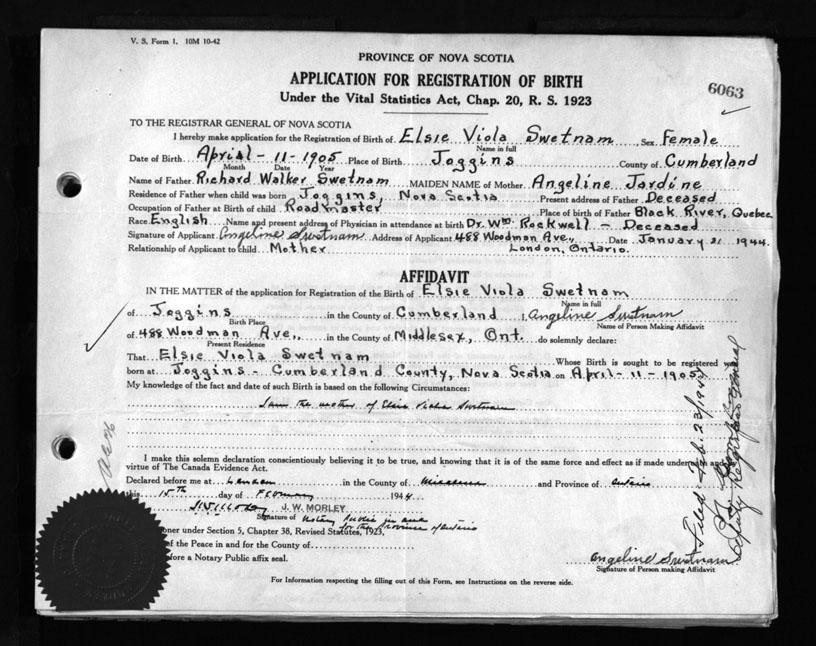 V. S. Form 1. 10M 10-42
PROVINCE OF NOVA SCOTIA
APPLICATION FOR REGISTRATION OF BIRTH
Under the Vital Statistics Act, Chap. 20, R. S. 1923
6063
TO THE REGISTRAR GENERAL OF NOVA SCOTIA
I hereby make application for the Registration of Birth of Elsie Viola Swetnam Sex Female
Name in full
Date of Birth April - 11 - 1905 Place of Birth Joggins County of Cumberland
Month Date Year
Name of Father Richard Walker Swetnam MAIDEN NAME of Mother Angeline Jardine
Residence of Father when child was born Joggins, Nova Scotia Present address of Father Deceased
Occupation of Father at Birth of child Roadmaster Place of birth of Father Black River, Quebec
Race English Name and present address of Physician in attendance at birth Dr. Wm. Rockwell - Deceased
Signature of Applicant Angeline Swetnam Address of Applicant 488 Woodman Ave., Date January 21 1944.
Relationship of Applicant to child Mother London, Ontario.
AFFIDAVIT
IN THE MATTER of the application for Registration of the Birth of Elsie Viola Swetnam
Name in full
of Joggins in the County of Cumberland I, Angeline Swetnam
Birth Place Name of Person Making Affidavit
of 488 Woodman Ave., in the County of Middlesex, Ont. do solemnly declare:
Present Residence
That Elsie Viola Swetnam Whose Birth is sought to be registered was
born at Joggins - Cumberland County, Nova Scotia on April - 11 - 1905
My knowledge of the fact and date of such Birth is based on the following Circumstances:
I am the mother of Elsie Viola Swetnam
I make this solemn declaration conscientiously believing it to be true, and knowing that it is of the same force and effect as if made under oath and
virtue of The Canada Evidence Act.
Declared before me at London in the County of Middlesex and Province of Ontario
this 15th day of February 1944.
J. W. MORLEY
Signature of Notary Public in and
for the Province of Ontario
oner under Section 5, Chapter 38, Revised Statutes, 1923,
of the Peace in and for the County of
efore a Notary Public affix seal.
Angeline Swetnam
Signature of Person making Affidavit
For Information respecting the filling out of this Form, see Instructions on the reverse side.
Filed Feb. 23/1944
Deputy Registrar General